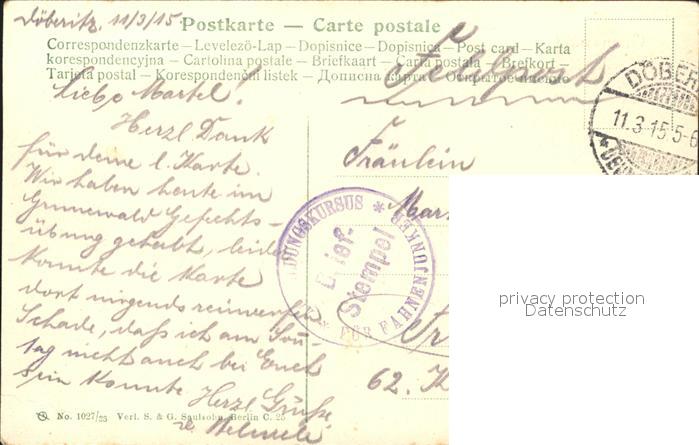 Döberitz. 11/3/15.
Postkarte — Carte postale
Correspondenzkarte – Levelező-Lap – Dopisnice – Dopisnica – Post card – Karta
korespondencyjna – Cartolina postale – Briefkaart – Carta postala – Brefkort –
Tarjeta postal – Korespondenční listek – Дописна карта – Открытое письмо
Feldpost
DÖBER
11.3.15.5-6
Liebe Martel!
Herzl. Dank
für deine l. Karte.
Wir haben heute im
Grunewald Gefechts-
übung gehabt, leider
konnte die Karte
dort nirgends reinwerfen
Schade, daß ich am Son-
tag nicht auch bei Euch
sein konnte. Herzl. Grüße
Fräulein
Mar
62.
DUNGSKURSUS * FÜR FAHNENJUNKER *
Brief-
Stempel
privacy protection
Datenschutz
No. 1027/25 Verl. S. & G. Saulsohn, Berlin C. 25